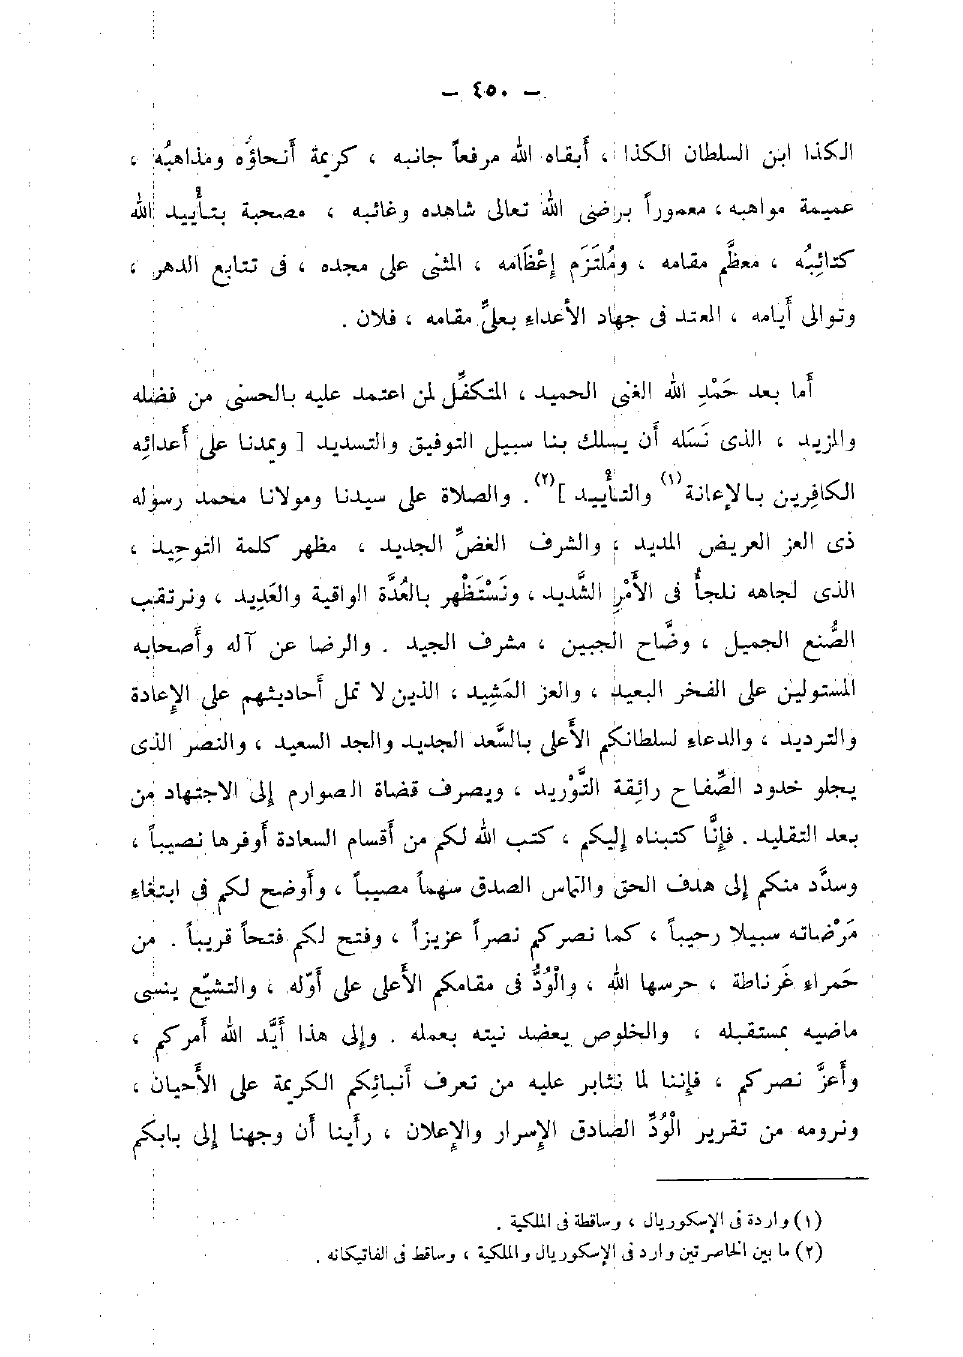 — ٤٥٠ —
الكذا ابن السلطان الكذا ، أبقاه الله مرفعاً جانبه ، كريمة أنحاؤُه ومذاهبُه ،
عميمة مواهبه ، معموراً برضى الله تعالى شاهده وغائبه ، مصحبة بتأييد الله
كتائِبُه ، معظَّم مقامه ، ومُلتَزَم إعْظَامه ، المثنى على مجده ، فى تتابع الدهر ،
وتوالى أيامه ، المعتد فى جهاد الأعداء بعلىِّ مقامه ، فلان .
أما بعد حَمْدِ الله الغنى الحميد ، المتكفِّل لمن اعتمد عليه بالحسنى من فضله
والمزيد ، الذى نَسَله أن يسلك بنا سبيل التوفيق والتسديد [ ويمدنا على أعدائِه
الكافرين بالإعانة(١) والتأييد ](٢) . والصلاة على سيدنا ومولانا محمد رسوله
ذى العز العريض المديد ، والشرف الغضِّ الجديد ، مظهر كلمة التوحيد ،
الذى لجاهه نلجأُ فى الأَمْرِ الشَّديد ، ونَسْتَظْهر بالعُدَّة الواقية والعَدِيد ، ونرتقب
الصُّنع الجميل ، وضَّاح الجبين ، مشرف الجيد . والرضا عن آله وأصحابه
المستولين على الفخر البعيد ، والعز المَشِيد ، الذين لا تمل أحاديثهم على الإعادة
والترديد ، والدعاء لسلطانكم الأعلى بالسَّعد الجديد والجد السعيد ، والنصر الذى
يجلو خدود الصِّفاح رائِقة التَّوْريد ، ويصرف قضاة الصوارم إلى الاجتهاد من
بعد التقليد . فإنَّا كتبناه إليكم ، كتب الله لكم من أقسام السعادة أوفرها نصيباً ،
وسدَّد منكم إلى هدف الحق والتماس الصدق سهماً مصيباً ، وأوضح لكم فى ابتغاء
مَرْضاته سبيلا رحيباً ، كما نصركم نصراً عزيزاً ، وفتح لكم فتحاً قريباً . من
حَمراء غَرناطة ، حرسها الله ، والْوُدُّ فى مقامكم الأعلى على أوّله ، والتشيّع ينسى
ماضيه بمستقبله ، والخلوص يعضد نيته بعمله . وإلى هذا أيَّد الله أمركم ،
وأعزَّ نصركم ، فإننا لما نثابر عليه من تعرف أنبائكم الكريمة على الأحيان ،
ونرومه من تقرير الْوُدِّ الصادق الإسرار والإعلان ، رأينا أن وجهنا إلى بابكم
(١) واردة فى الإسكوريال ، وساقطة فى الملكية .
(٢) ما بين الخاصرتين وارد فى الإسكوريال والملكية ، وساقط فى الفاتيكانه .